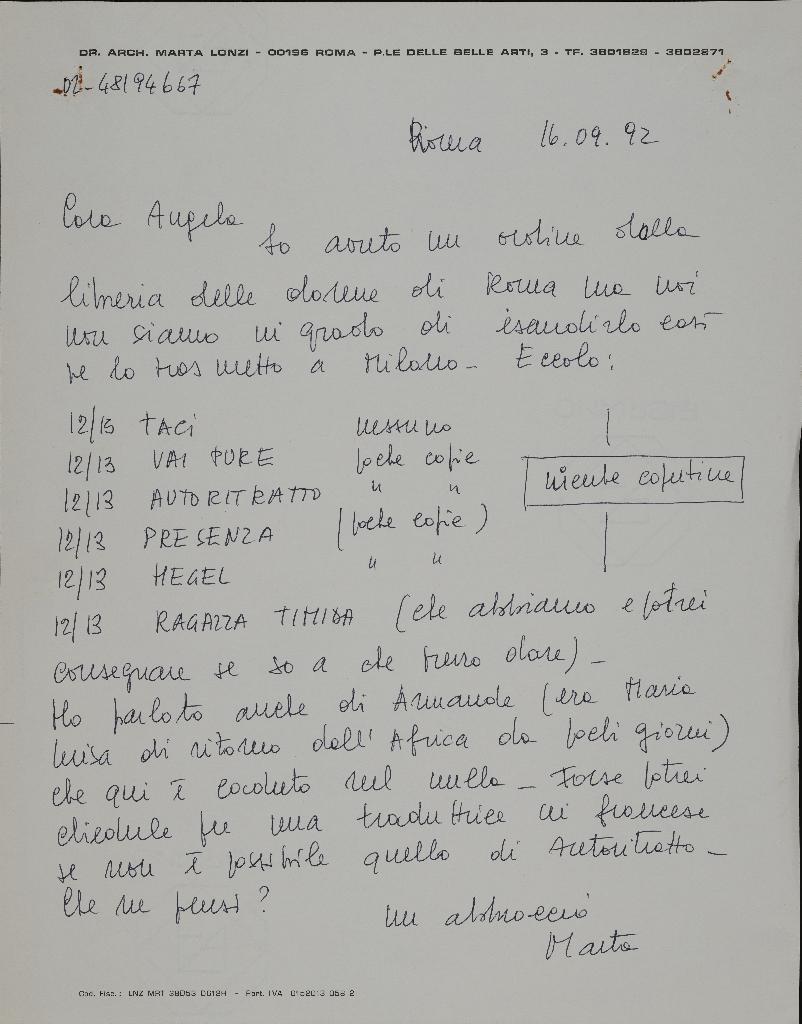 DR. ARCH. MARTA LONZI - 00196 ROMA - P.LE DELLE BELLE ARTI, 3 - TF. 3601828 - 3602871
02-48194667
Roma 16.09.92
Cara Angela
ho avuto un ordine dalla
libreria delle donne di Roma ma noi
non siamo in grado di esaudirlo così
te lo trasmetto a Milano - Eccolo:
12/13 TACI nessuno
12/13 VAI PURE poche copie
12/13 AUTORITRATTO " "
niente copertine
12/13 PRESENZA (poche copie)
12/13 HEGEL " "
12/13 RAGAZZA TIMIDA (che abbiamo e potrei
consegnare se so a che prezzo dare) -
Ho parlato anche di Armande (era Maria
luisa di ritorno dall' Africa da pochi giorni)
che qui è caduto nel nulla - Forse potrei
chiederle per una traduttrice in francese
se non è possibile quello di Autoritratto -
Che ne pensi?
un abbraccio
Marta
Cod. Fisc.: LNZ MRT 38D53 D612H - Part. IVA